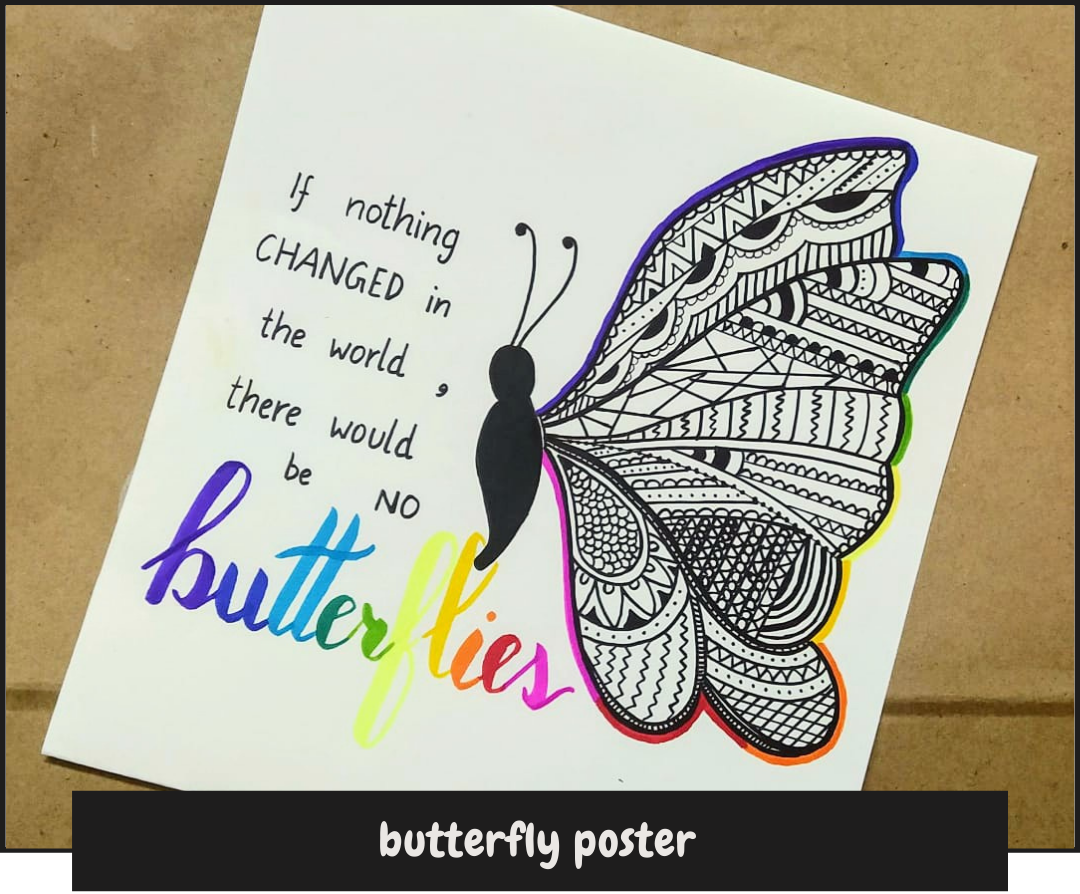 If nothing
CHANGED in
the world ,
there would
be NO
butterflies
butterfly poster